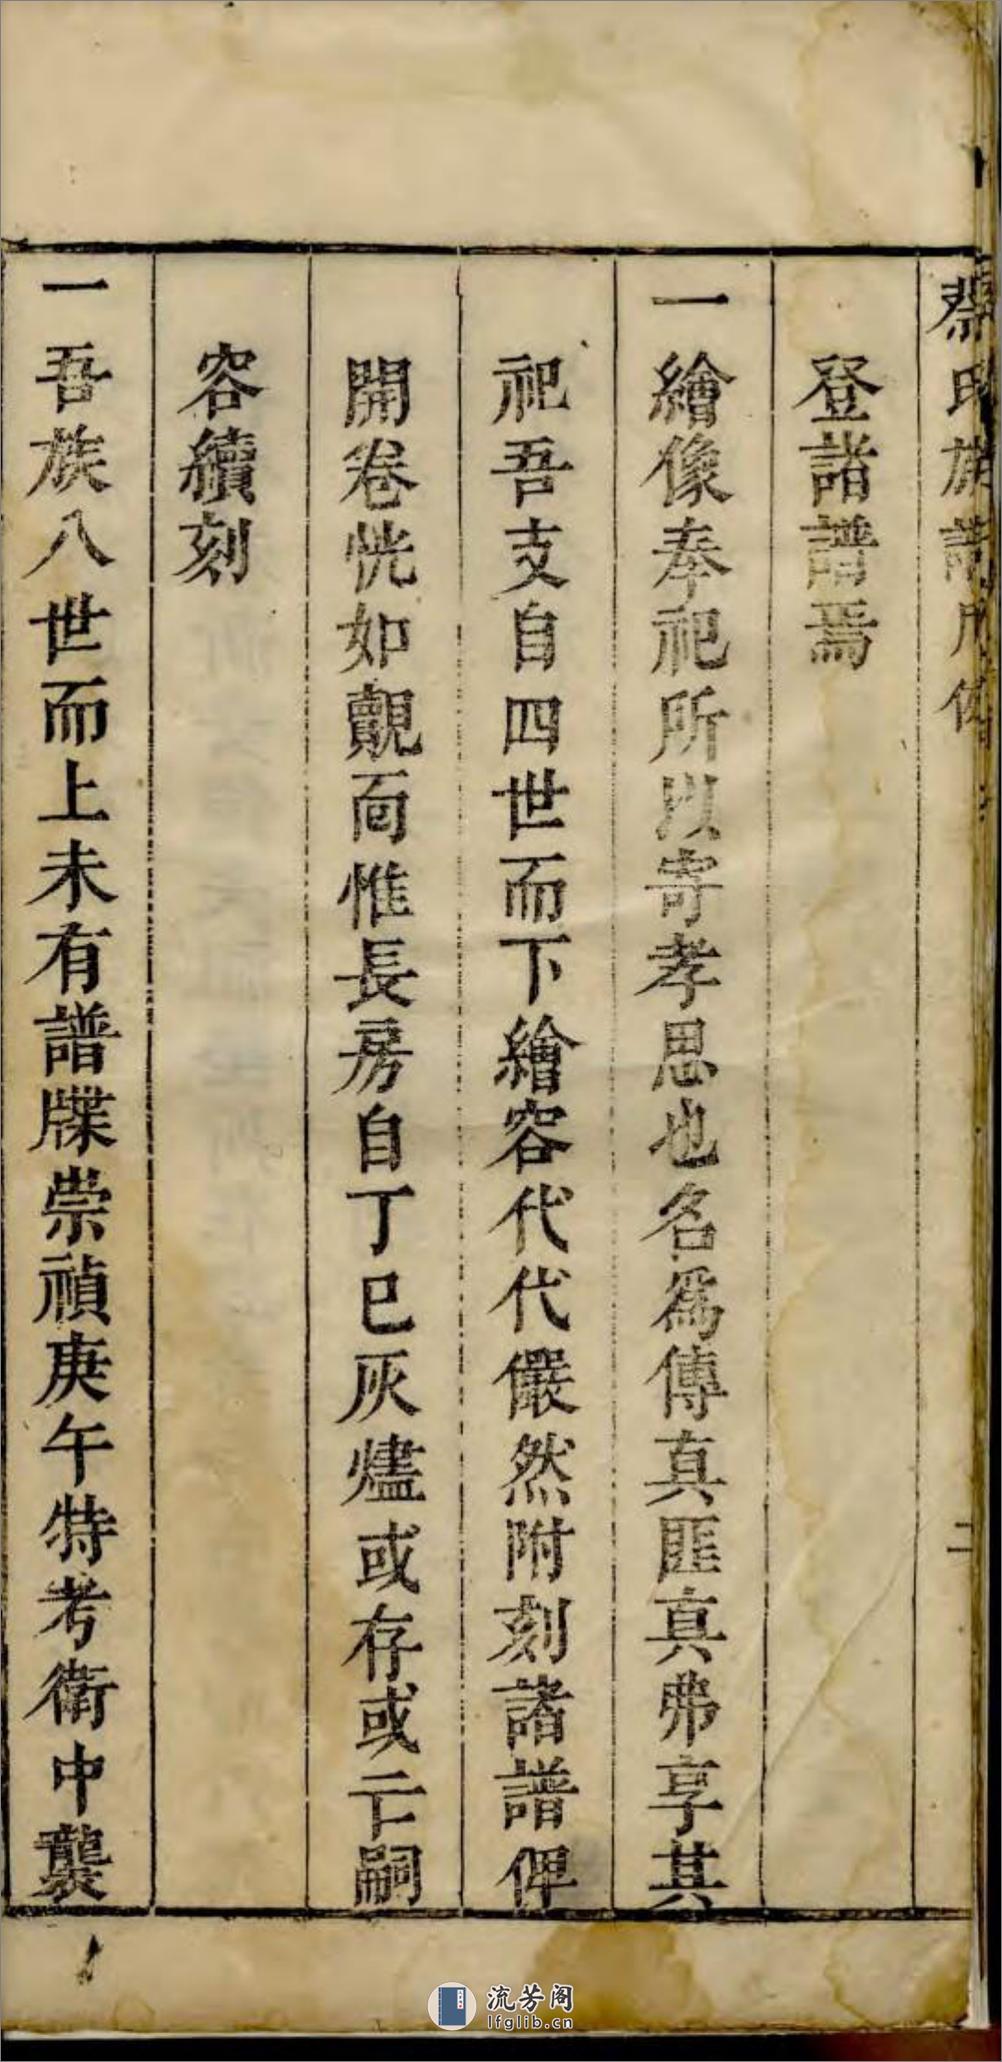 蔡氏族譜凡例
二
登諸譜焉
一繪像奉祀所以寄孝思也名爲傳真匪真弗享其
祀吾支自四世而下繪容代代儼然附刻諸譜俾
開卷恍如覿面惟長房自丁巳灰燼或存或亡嗣
容續刻
一吾族八世而上未有譜牒崇禎庚午特考衛中襲
流芳阁
lfglib.cn